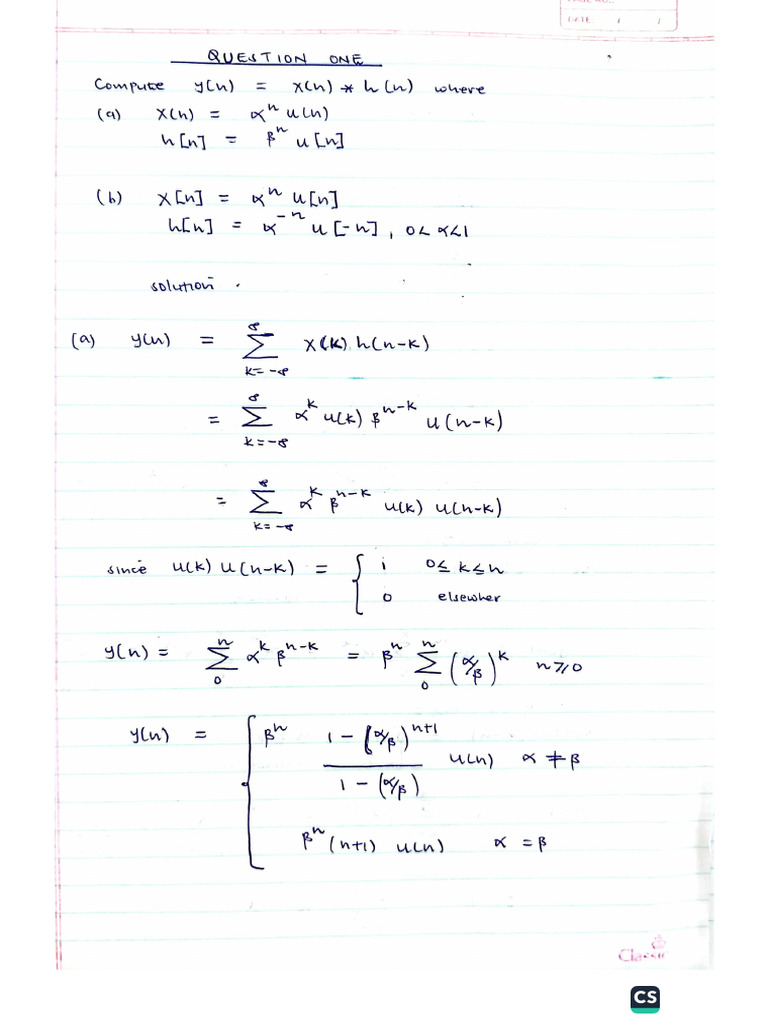 DATE / /
QUESTION ONE
Compute y(n) = x(n) * h(n) where
(a) x(n) = α^n u(n)
h[n] = β^n u[n]
(b) x[n] = α^n u[n]
h[n] = α^-n u[-n], 0<α<1
solution.
(a) y(n) = ∑_{k=-∞}^{∞} x(k) h(n-k)
= ∑_{k=-∞}^{∞} α^k u(k) β^{n-k} u(n-k)
= ∑_{k=-∞}^{∞} α^k β^{n-k} u(k) u(n-k)
since u(k) u(n-k) = { 1 0≤k≤n
0 elsewher
y(n) = ∑_{0}^{n} α^k β^{n-k} = β^n ∑_{0}^{n} (α/β)^k n≥0
y(n) = { β^n (1 - (α/β)^{n+1}) / (1 - (α/β)) u(n) α ≠ β
β^n (n+1) u(n) α = β
CS